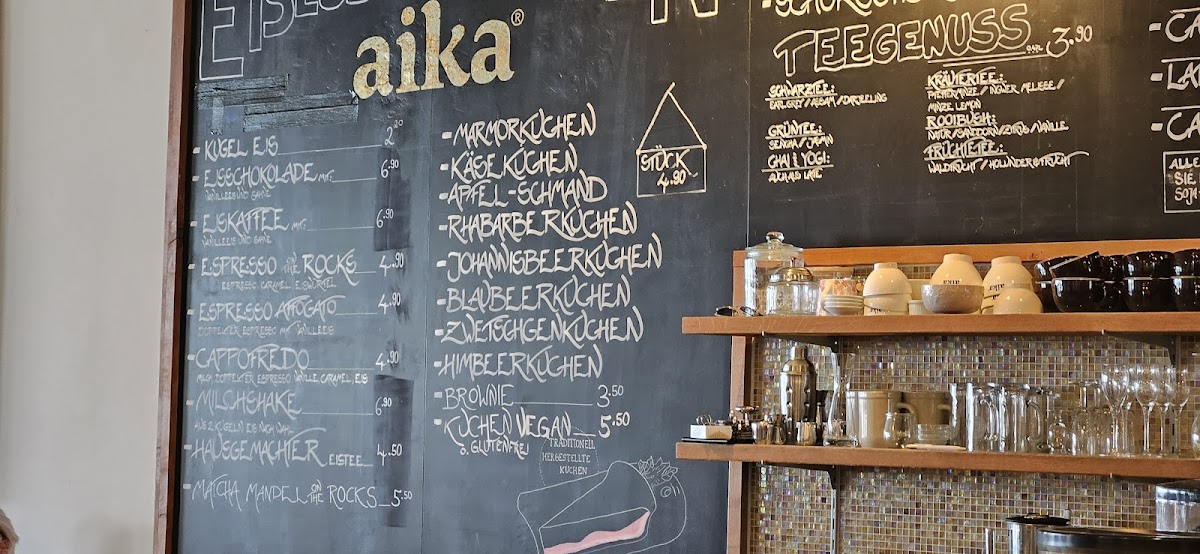 aika®
- KUGEL EIS 2.20
- EISSCHOKOLADE MIT 6.90
VANILLEEIS UND SAHNE
- EISKAFFEE MIT 6.90
VANILLEEIS UND SAHNE
- ESPRESSO ON THE ROCKS 4.90
ESPRESSO, CARAMEL, EISWÜRFEL
- ESPRESSO AFFOGATO 4.90
DOPPELTER ESPRESSO MIT VANILLEEIS
- CAPPOFREDO 4.90
MILCH, DOPPELTER ESPRESSO, VANILLE, CARAMEL, EIS
- MILCHSHAKE 6.90
AUS 2 KUGELN EIS NACH WAHL
- HAUSGEMACHTER EISTEE 4.50
- MATCHA MANDEL ON THE ROCKS 5.50
- MARMORKUCHEN
- KÄSEKUCHEN
- APFEL-SCHMAND
- RHABARBERKUCHEN
- JOHANNISBEERKUCHEN
- BLAUBEERKUCHEN
- ZWETSCHGENKUCHEN
- HIMBEERKUCHEN
- BROWNIE 3.50
- KUCHEN VEGAN 5.50
O. GLUTENFREI
STÜCK
4.90
TRADITIONELL
HERGESTELLTE
KUCHEN
TEEGENUSS 3.90
SCHWARZTEE:
EARL GREY / ASSAM / DARJEELING
GRÜNTEE:
SENCHA / JASMIN
CHAI & YOGI:
AUCH ALS LATE
KRÄUTERTEE:
PFEFFERMINZE / INGWER MELISSE /
MINZE LEMON
ROOIBUCH:
NATUR / SANDDORN / ZITRUS / VANILLE
FRÜCHTETEE:
WALDFRUCHT / HOLUNDERFRUCHT
- CA
- LAT
- CA
ALLE
SIE
SOJA
aika